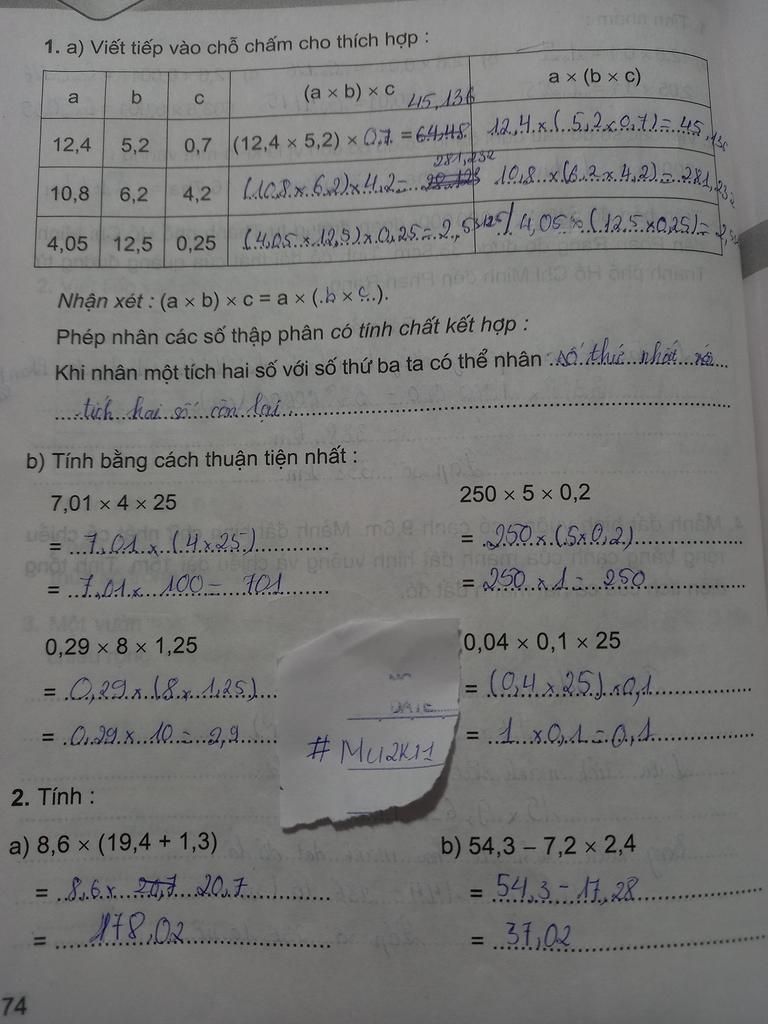 1. a) Viết tiếp vào chỗ chấm cho thích hợp :
a b c (a × b) × c a × (b × c)
45,136
12,4 5,2 0,7 (12,4 × 5,2) × 0,7 = 64,48 12,4 × (5,2 × 0,7) = 45,136
281,232
10,8 6,2 4,2 (10,8 × 6,2) × 4,2 = 10,8 × (6,2 × 4,2) = 281,232
4,05 12,5 0,25 (4,05 × 12,5) × 0,25 = 4,05 × (12,5 × 0,25) =
Nhận xét : (a × b) × c = a × (.b × c..).
Phép nhân các số thập phân có tính chất kết hợp :
Khi nhân một tích hai số với số thứ ba ta có thể nhân số thứ nhất với
tích hai số còn lại.
b) Tính bằng cách thuận tiện nhất :
7,01 × 4 × 25 250 × 5 × 0,2
= 7,01 × (4 × 25) = 250 × (5 × 0,2)
= 7,01 × 100 = 701 = 250 × 1 = 250
0,29 × 8 × 1,25 0,04 × 0,1 × 25
= 0,29 × (8 × 1,25) = (0,4 × 25) × 0,1
= 0,29 × 10 = 2,9 = 1 × 0,1 = 0,1
DATE
# Mu2K11
2. Tính :
a) 8,6 × (19,4 + 1,3) b) 54,3 – 7,2 × 2,4
= 8,6 × 20,7 20,7 = 54,3 – 17,28
= 178,02 = 37,02
74